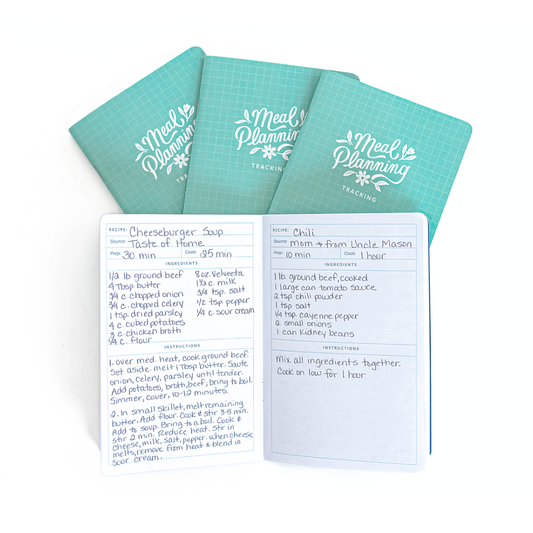 Meal
Planning
TRACKING
Meal
Planning
TRACKING
Meal
Planning
TRACKING
RECIPE: Cheeseburger Soup
Source: Taste of Home
Prep: 30 min Cook: 25 min
INGREDIENTS
1/2 lb ground beef
4 Tbsp butter
3/4 c. chopped onion
3/4 c. chopped celery
1 tsp. dried parsley
4 c. cubed potatoes
3 c. chicken broth
1/4 c. flour
8 oz. Velveeta
1 1/2 c. milk
3/4 tsp. salt
1/2 tsp pepper
1/4 c. sour cream
INSTRUCTIONS
1. over med. heat, cook ground beef.
Set aside. melt 1 Tbsp butter. Saute
onion, celery, parsley until tender.
Add potatoes, broth, beef; bring to boil.
Simmer, cover, 10-12 minutes.
2. In small skillet, melt remaining
butter. Add flour. Cook & stir 3-5 min.
Add to soup. Bring to a boil. Cook &
stir 2 min. Reduce heat. Stir in
cheese, milk, salt, pepper. when cheese
melts, remove from heat & blend in
sour cream.
RECIPE: Chili
Source: mom → from Uncle Mason
Prep: 10 min Cook: 1 hour
INGREDIENTS
1 lb ground beef, cooked
1 large can tomato sauce
2 tsp chili powder
1 tsp salt
1/4 tsp. cayenne pepper
2 small onions
1 can kidney beans
INSTRUCTIONS
Mix all ingredients together.
Cook on low for 1 hour